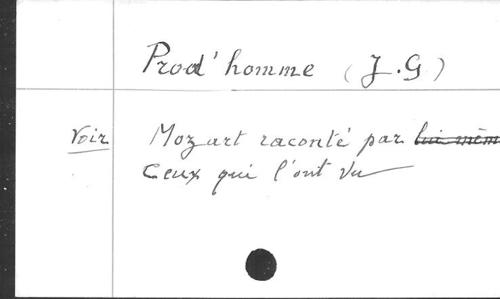 Prod'homme (J.G)
Voir Mozart raconté par lui mêm
Ceux qui l'ont vu